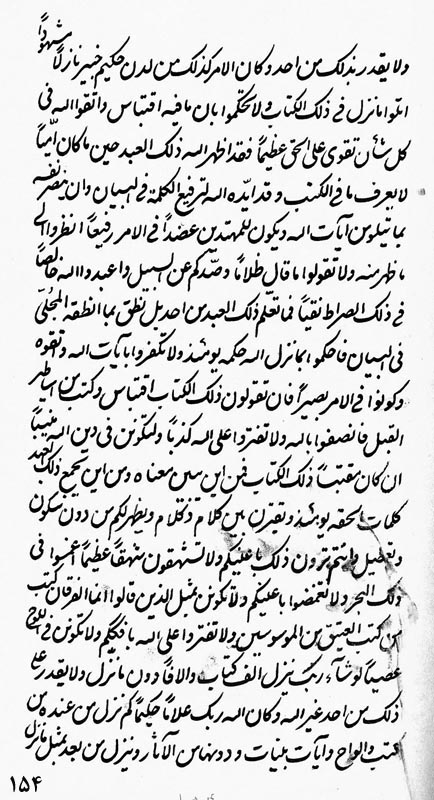 مشهودًا
ولا يقدر بذلك من احد وكان الامر كذلك من لدن حكيم خبير نازلًا
اتلوا ما نزل فى ذلك الكتاب ولا تحكموا بان ما فيه اقتباس واتقوا الله فى
كل شأن تقوى على الحق عظيمًا فقد اظهر الله ذلك العبد حين ما كان اميًا
لا يعرف ما فى الكتب وقد ايّده الله لترفيع الكلمة فى البيان وان ينصر نفسه
بما يتلو من آيات الله ويكون للمهتدين عضدًا فى الامر رفيعًا انظروا الى
ما ظهر منه ولا تقولوا ما قال ظلامًا وصدّكم عن السبيل واعبدوا الله خالصًا
فى ذلك الصراط نقيًا فما تعلّم ذلك العبد من احد بل نطق بما انطقه المجلّى
فى البيان فاحكموا بما نزل الله حكمه يومئذ ولا تكفروا بآيات الله واتقوه
وكونوا فى الامر بصيرًا فان تقولون ذلك الكتاب اقتباس وكتب من اساطير
القبل فانصفوا بالله ولا تفتروا على الله كذبًا ولتكونن فى دين الله منيبًا
ان كان مقتبسًا ذلك الكتاب فمن اين سين معناه ومن اين يجمع ذلك العبد
كلمات الحقه يومئذ ويقترن بين كلام ذكلام ويظهر لكم من دون سكون
وتعطيل وانتم ترون ذلك باعينكم ولا تشهقون شهقًا عظيمًا اغمسوا فى
ذلك البحر ولا تغمضوا باعينكم ولا تكونن بمثل الذين قالوا انما الفرقان كتب
من كتب العتيق من الموسوسين ولا تفتروا على الله بافككم ولا تكونن فى اللوح
عصيًا لو شاء ربك ينزل الف كتاب والافًا دون ما نزل ولا يقدر على
ذلك من احد غير الله وكان الله ربك علامًا حكيمًا كم نزل من عنده من
كتب والواح وآيات بينات و دونها من الآثار وينزل من بعد بمثل ما نزل
۱۵۴